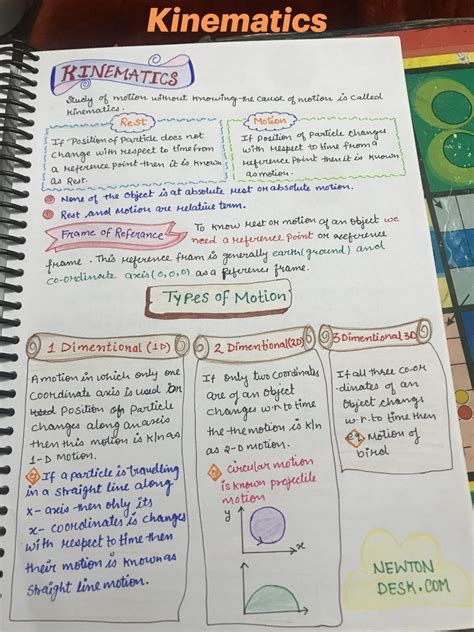 Kinematics
KINEMATICS
Study of motion without knowing the cause of motion is called
kinematics.
Rest
If Position of Particle does not
change with respect to time from
a reference Point then it is known
as Rest.
Motion
If Position of particle changes
with respect to time from a
reference Point then it is known
as motion.
None of the Object is at absolute rest or absolute motion.
Rest and Motion are relative term.
Frame of Referance
To know rest or motion of an Object we
need a reference point or reference
frame. This reference fram is generally earth (ground) and
co-ordinate axis (0,0,0) as a reference frame.
Types of Motion
1 Dimentional (1D)
A motion in which only one
Coordinate axis is used or
Position of Particle
changes along an axis
then this motion is k/n as
1-D Motion.
If a particle is travelling
in a straight line along
x-axis then only its
x-coordinates is changes
with respect to time then
their motion is known as
Straight line motion.
2 Dimentional (2D)
If only two coordinates
are of an Object
changes w.r. to time
the motion is k/n
as 2-D motion.
Circular motion
is known projectile
motion
y
x
3 Dimentional 3D
If all three co-or
dinates of an
Object changes
w.r. to time then
eg Motion of
bird
NEWTON
DESK.COM